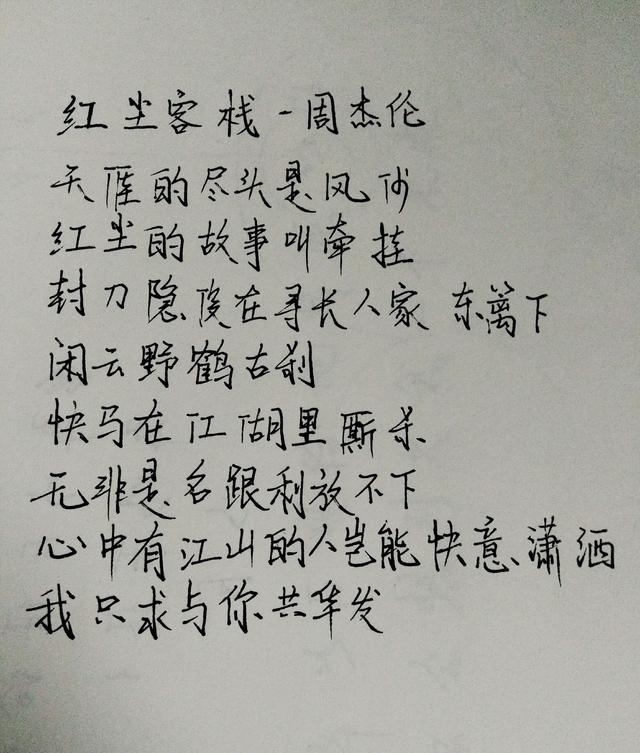 红尘客栈-周杰伦
天涯的尽头是风沙
红尘的故事叫牵挂
封刀隐没在寻长人家 东篱下
闲云野鹤古刹
快马在江湖里厮杀
无非是名跟利放不下
心中有江山的人岂能快意潇洒
我只求与你共华发